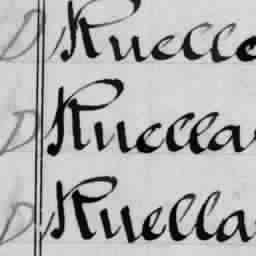 D Ruella
D Ruella
D Ruella